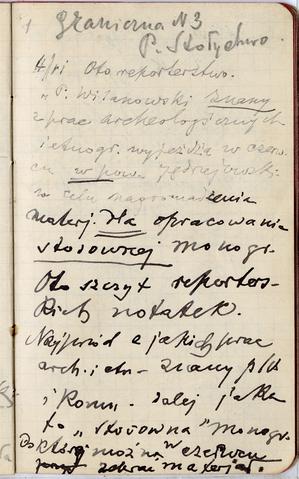 Graniczna N3
P. Stołychwo
4/VI Oto reporterstwo.
„P. Wisanowski znany
z prac archeologicznych
i etnogr. wyjeżdża w czerw-
cu w pow. Jędrzejowski
w celu nagromadzenia
materj. dla opracowania
stosownej monogr.
Oto szczyt reporters-
kich notatek.
Najprzód z jakich prac
arch. i etn- znany p/s
i komu- dalej jaka
to „stosowna" monogr.
Do której można w czerwcu
zebrać materjał.